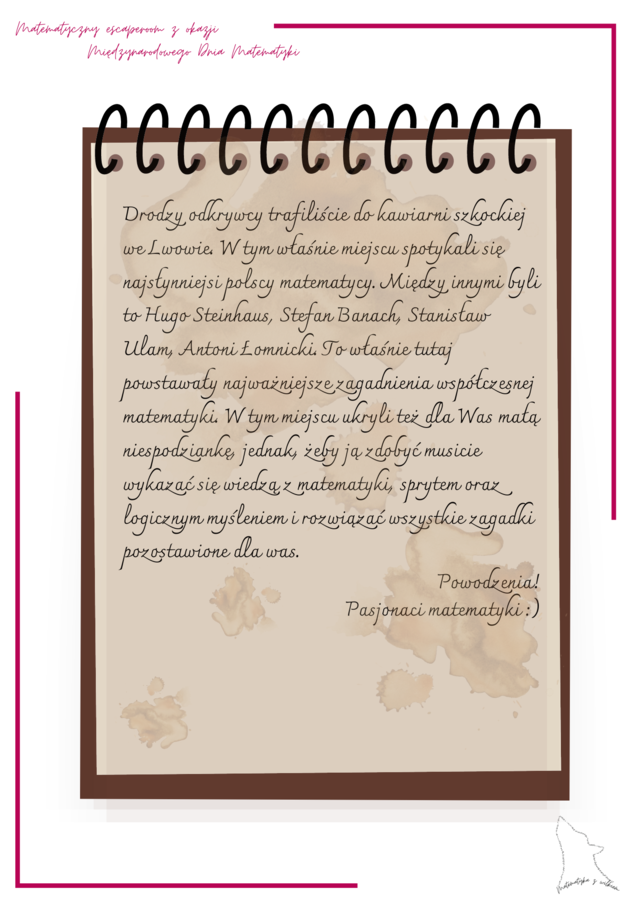 Matematyczny escaperoom z okazji
Międzynarodowego Dnia Matematyki
Drodzy odkrywcy trafiliście do kawiarni szkockiej
we Lwowie. W tym właśnie miejscu spotykali się
najsłynniejsi polscy matematycy. Między innymi byli
to Hugo Steinhaus, Stefan Banach, Stanisław
Ulam, Antoni Łomnicki. To właśnie tutaj
powstawały najważniejsze zagadnienia współczesnej
matematyki. W tym miejscu ukryli też dla Was małą
niespodziankę, jednak, żeby ją zdobyć musicie
wykazać się wiedzą z matematyki, sprytem oraz
logicznym myśleniem i rozwiązać wszystkie zagadki
pozostawione dla was.
Powodzenia!
Pasjonaci matematyki :)
matematyka z